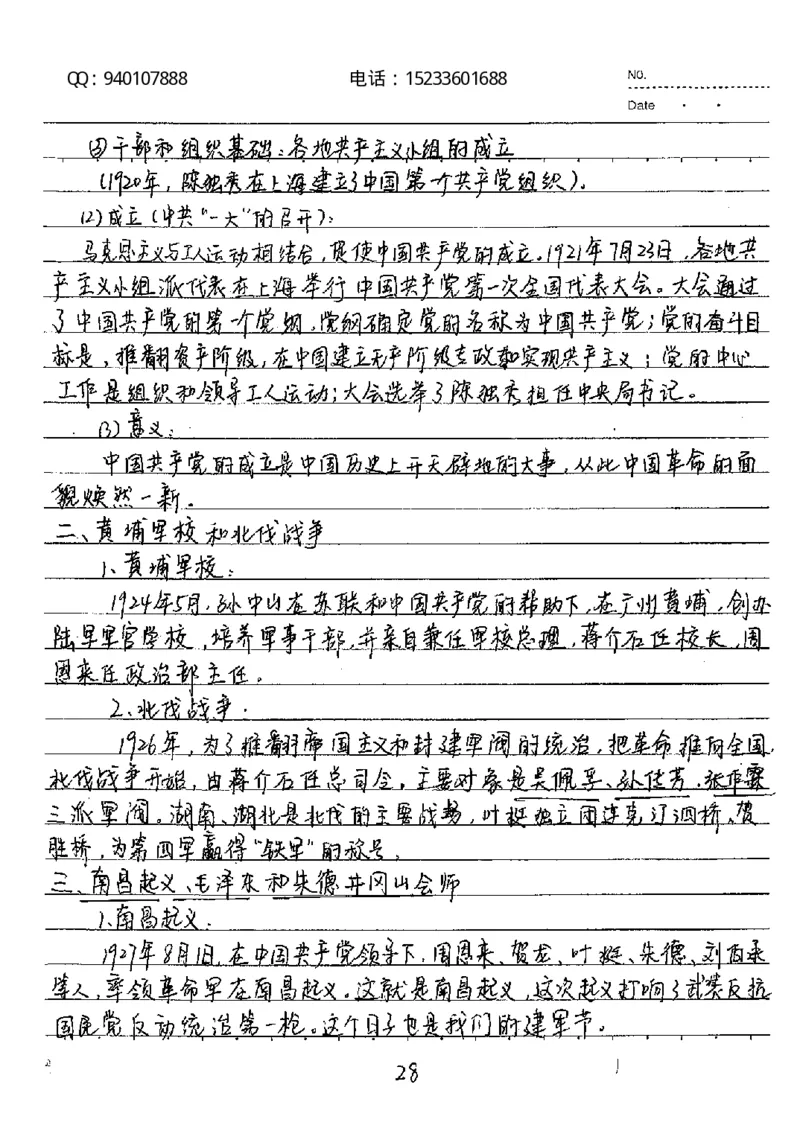 QQ：940107888
电话：15233601688
No.
Date
④干部和组织基础：各地共产主义小组的成立
（1920年，陈独秀在上海建立了中国第一个共产党组织）。
(2)成立（中共“一大”的召开）：
马克思主义与工人运动相结合，促使中国共产党的成立。1921年7月23日，各地共
产主义小组派代表在上海举行中国共产党第一次全国代表大会。大会通过
了中国共产党的第一个党纲，党纲确定党的名称为中国共产党；党的奋斗目
标是，推翻资产阶级，在中国建立无产阶级专政和实现共产主义；党的中心
工作是组织和领导工人运动；大会选举了陈独秀担任中央局书记。
(3)意义：
中国共产党的成立是中国历史上开天辟地的大事，从此中国革命的面
貌焕然一新。
二、黄埔军校和北伐战争
1、黄埔军校：
1924年5月，孙中山在苏联和中国共产党的帮助下，在广州黄埔，创办
陆军军官学校，培养军事干部，并亲自兼任军校总理，蒋介石任校长，周
恩来任政治部主任。
2、北伐战争．
1926年，为了推翻帝国主义和封建军阀的统治，把革命推向全国，
北伐战争开始，由蒋介石任总司令，主要对象是吴佩孚、孙传芳、张作霖
三派军阀。湖南、湖北是北伐的主要战场，叶挺独立团连克汀泗桥、贺
胜桥，为第四军赢得“铁军”的称号，
三、南昌起义、毛泽东和朱德井冈山会师
1、南昌起义：
1927年8月1日，在中国共产党领导下，周恩来、贺龙、叶挺、朱德、刘伯承
等人，率领革命军在南昌起义。这就是南昌起义，这次起义打响了武装反抗
国民党反动统治第一枪。这个日子也是我们的建军节。
28